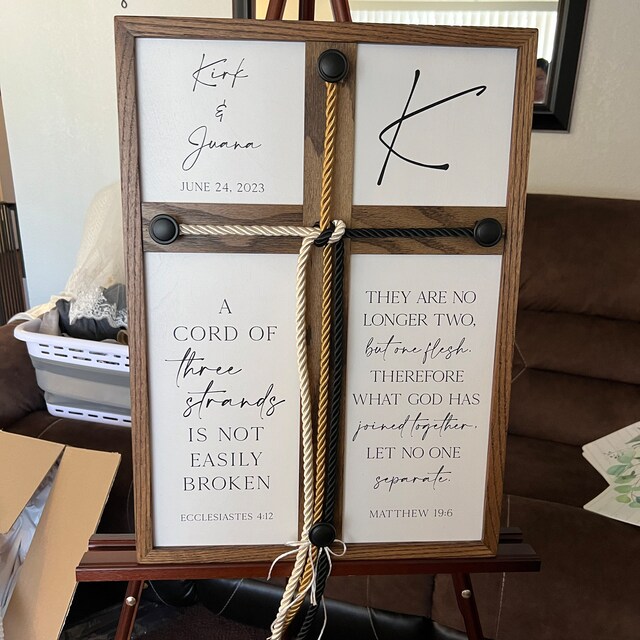 Kirk
&
Juana
JUNE 24, 2023
K
A
CORD OF
three
strands
IS NOT
EASILY
BROKEN
ECCLESIASTES 4:12
THEY ARE NO
LONGER TWO,
but one flesh.
THEREFORE
WHAT GOD HAS
joined together,
LET NO ONE
separate.
MATTHEW 19:6